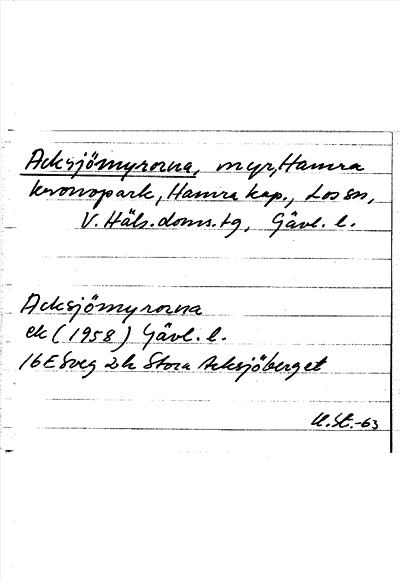 Acksjömyrorna, myr, Hamra
kronopark, Hamra kap., Los sn,
V. Häls. doms.tg, Gävl. l.
Acksjömyrorna
ek (1958) Gävl. l.
16E Sveg 2h Stora Acksjöberget
U.St.-63